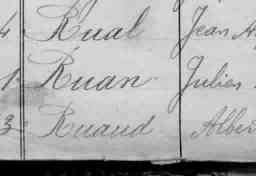 4 Rual Jean
1 Ruan Julien
3 Ruaud Alber